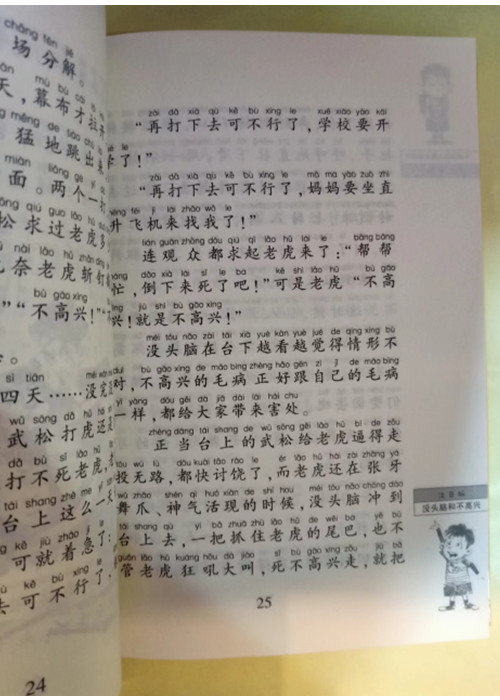 chǎng fēn jiě
场分解。
mù bù cái lā
天，幕布才拉开
měng de tiào chū
猛地跳出来
miàn liǎng gè yì
面。两个一
sōng qiú guo lǎo hǔ
松求过老虎多
nài lǎo hǔ zhǎn dīng
奈老虎斩钉
bù gāo xìng
”“不高兴！”
sì tiān
四天……没完
wǔ sōng dǎ hǔ hái
武松打虎还
dǎ bù sǐ lǎo hǔ
打不死老虎，
tái shang zhè me yì
台上这么一
kě jiù zháo jí le
可就着急了：
qù kě bù xíng le
去可不行了，
24
zài dǎ xià qù kě bù xíng le xué xiào yào kāi
“再打下去可不行了，学校要开
le
学了！”
zài dǎ xià qù kě bù xíng le mā ma yào zuò zhí
“再打下去可不行了，妈妈要坐直
shēng fēi jī lái zhǎo wǒ le
升飞机来找我了！”
lián guān zhòng dōu qiú qǐ lǎo hǔ lái le bāng bāng
连观众都求起老虎来了：“帮帮
máng dǎo xià lái sǐ le ba kě shì lǎo hǔ bù gāo
忙，倒下来死了吧！”可是老虎“不高
xìng jiù shì bù gāo xìng
兴！就是不高兴！”
méi tóu nǎo zài tái xià yuè kàn yuè jué de qíng xing bù
没头脑在台下越看越觉得情形不
duì bù gāo xìng de máo bìng zhèng hǎo gēn zì jǐ de máo bìng
对，不高兴的毛病正好跟自己的毛病
yí yàng dōu gěi dà jiā dài lái hài chu
一样，都给大家带来害处。
zhèng dāng tái shang de wǔ sōng gěi lǎo hǔ bī de zǒu
正当台上的武松给老虎逼得走
tóu wú lù dōu kuài tǎo ráo le ér lǎo hǔ hái zài zhāng yá
投无路，都快讨饶了，而老虎还在张牙
wǔ zhǎo shén qì huó xiàn de shí hou méi tóu nǎo chōng dào
舞爪、神气活现的时候，没头脑冲到
tái shang qù yì bǎ zhuā zhù lǎo hǔ de wěi ba yě bù
台上去，一把抓住老虎的尾巴，也不
guǎn lǎo hǔ kuáng hǒu dà jiào sǐ bù gāo xìng zǒu jiù bǎ
管老虎狂吼大叫，死不高兴走，就把
25
注音版
没头脑和不高兴